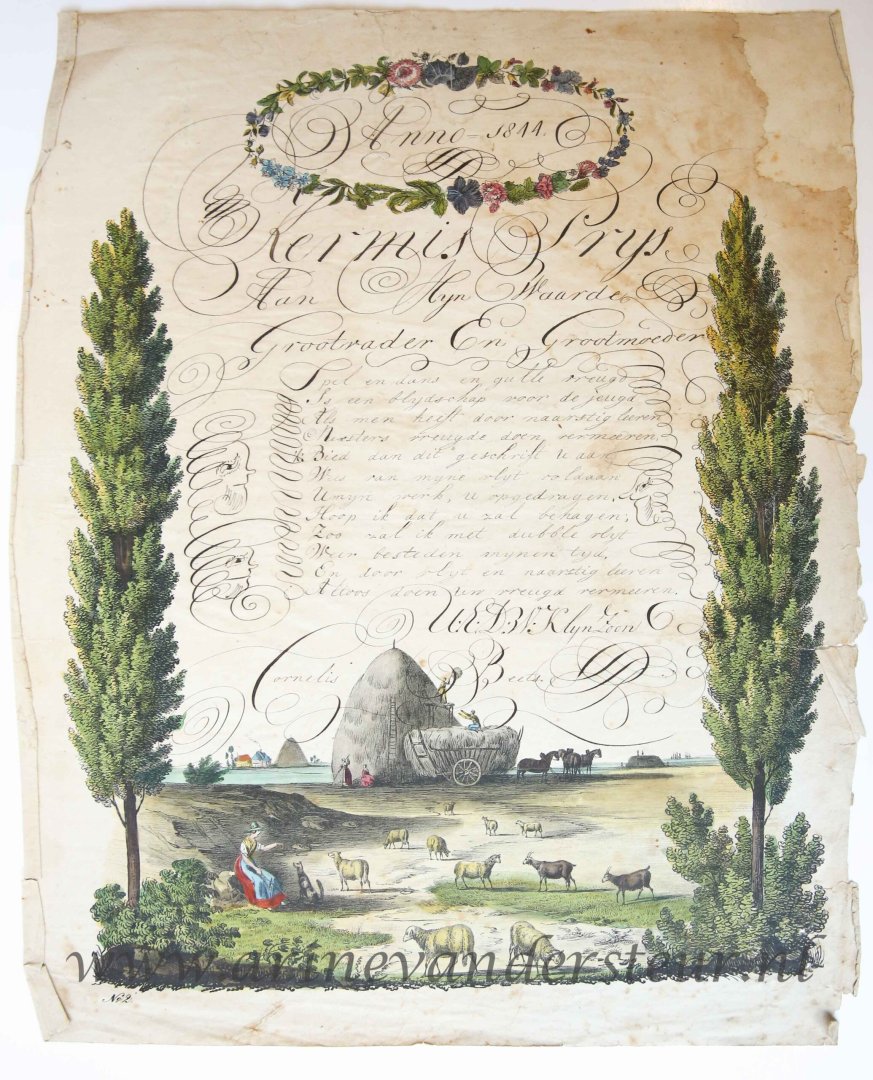 Anno - 1844.
Kermis Prys
Aan Myn Waarde
Grootvader En Grootmoeder
Spel en dans en gulle vreugd
Is een blydschap voor de jeugd
Als men heeft door naarstig leeren
Meesters vreugde doen vermeeren,
k Bied dan dit geschrift u aan
Wis van myne vlyt voldaan
U myn werk, u opgedragen,
Hoop ik dat u zal behagen;
Zoo zal ik met dubble vlyt
Weer besteden mynen tyd,
En door vlyt en naarstig leeren
Altoos doen uw vreugd vermeeren.
Klyn Zoon
Cornelis Beets.
www.arinevandersteur.nl
No 2